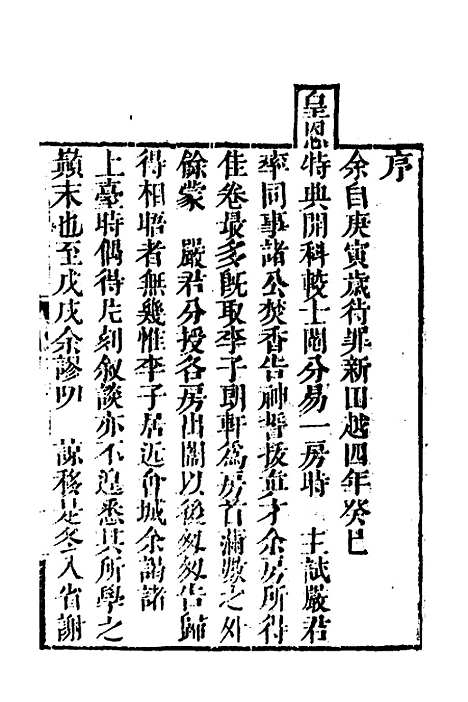 序
余自庚寅歲待罪新田越四年癸巳
皇恩特典開科較士闈分易一房時　主試嚴君
率同事諸公焚香告神誓拔真才余房所得
佳卷最多旣取李子朗軒為房首滿數之外
餘蒙　嚴君分授各房出闈以後匆匆告歸
得相晤者無幾惟李子居近會城余謁諸
上臺時偶得片刻叙談亦不遑悉其所學之
顛末也至戊戌余謬叨　諒移是冬入省謝